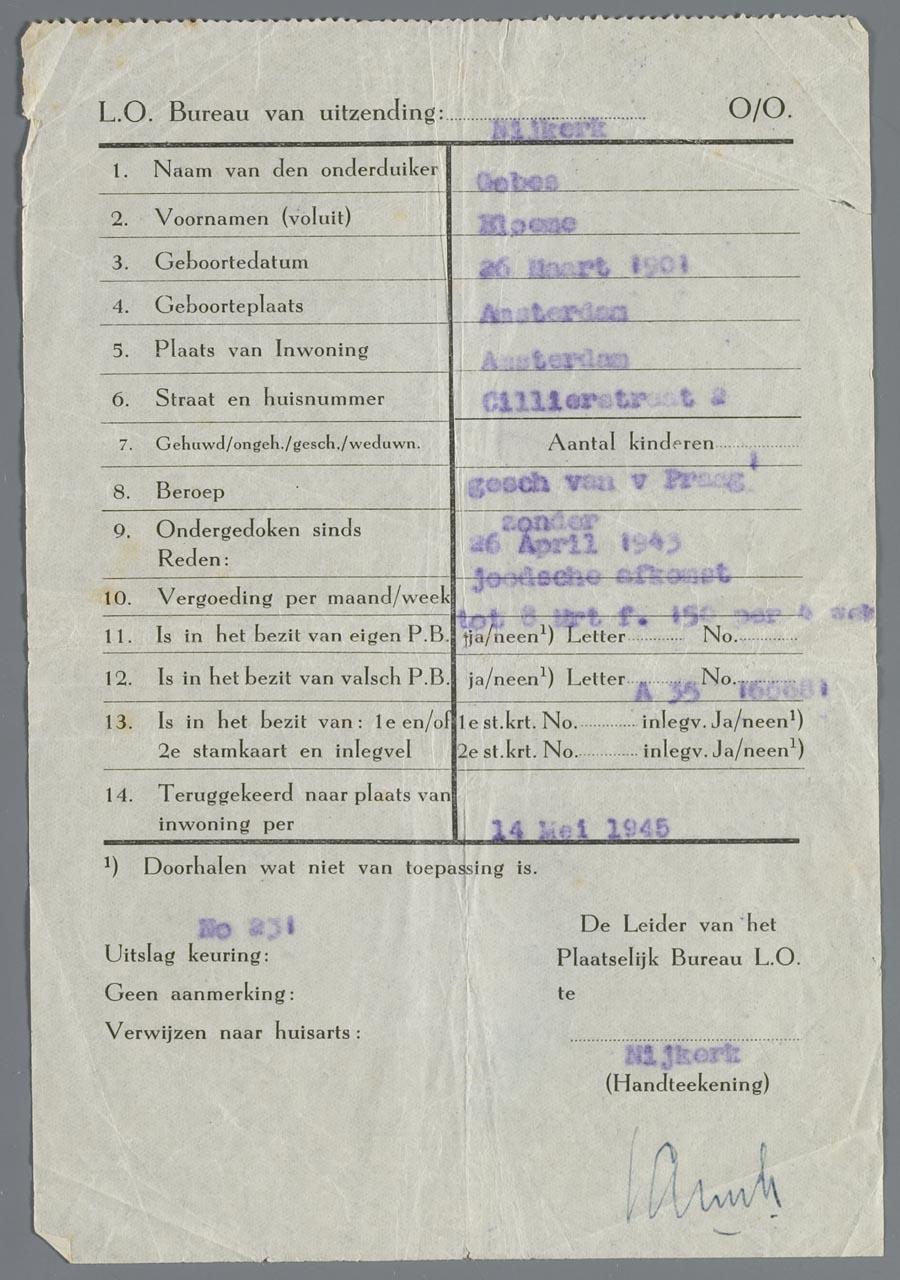 L.O. Bureau van uitzending: Nijkerk O/O.
1. Naam van den onderduiker Gobes
2. Voornamen (voluit) Bloeme
3. Geboortedatum 26 Maart 1901
4. Geboorteplaats Amsterdam
5. Plaats van Inwoning Amsterdam
6. Straat en huisnummer Cillierstraat 2
7. Gehuwd/ongeh./gesch./weduwn. Aantal kinderen
gesch van v Praag
8. Beroep
zonder
9. Ondergedoken sinds 26 April 1943
Reden: joodsche afkomst
10. Vergoeding per maand/week tot 8 Mrt f. 150 per 4 wek
11. Is in het bezit van eigen P.B. ja/neen¹) Letter No.
12. Is in het bezit van valsch P.B. ja/neen¹) Letter A 35 No. 166681
13. Is in het bezit van: 1e en/of 1e st.krt. No. inlegv. Ja/neen¹)
2e stamkaart en inlegvel 2e st.krt. No. inlegv. Ja/neen¹)
14. Teruggekeerd naar plaats van
inwoning per 14 Mei 1945
¹) Doorhalen wat niet van toepassing is.
No 231
Uitslag keuring:
Geen aanmerking:
Verwijzen naar huisarts:
De Leider van het
Plaatselijk Bureau L.O.
te
Nijkerk
(Handteekening)